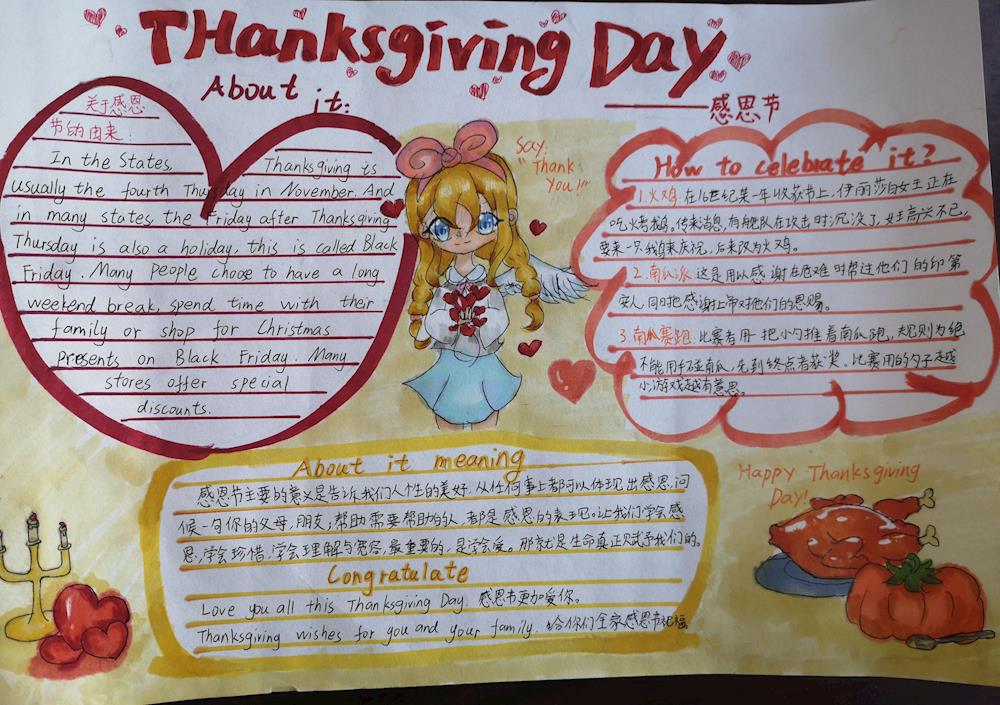 THanksgiving Day
About it:
感恩节
关于感恩
节的由来:
In the States, Thanksgiving is
usually the fourth Thursday in November. And
in many states, the Friday after Thanksgiving
Thursday is also a holiday, this is called Black
Friday. Many people choose to have a long
weekend break, spend time with their
family or shop for Christmas
presents on Black Friday. Many
stores offer special
discounts.
Say,
"Thank
You!"
How to celebrate it?
1.火鸡.在16世纪某一年收获节上,伊丽莎白女王正在
吃火烤鹅。传来消息,有舰队在攻击时沉没了,女王高兴不已,
要来一只鹅来庆祝,后来改为火鸡。
2.南瓜派 这是用以感谢在危难时帮过他们的印第
安人,同时把感谢上帝对他们的恩赐。
3.南瓜赛跑.比赛者用一把小勺推着南瓜跑,规则为绝
不能用手碰南瓜,先到终点者获奖。比赛用的勺子越
小游戏越有意思。
About it meaning
感恩节主要的意义是告诉我们人性的美好.从任何事上都可以体现出感恩.问
候一句你的父母,朋友;帮助需要帮助的人,都是感恩的表现。让我们学会感
恩,学会珍惜.学会理解与宽容,最重要的,是学会爱。那就是生命真正赋予我们的。
Congratulate
Love you all this Thanksgiving Day. 感恩节更加爱你。
Thanksgiving wishes for you and your family. 给你们全家感恩节祝福
Happy Thanksgiving
Day!